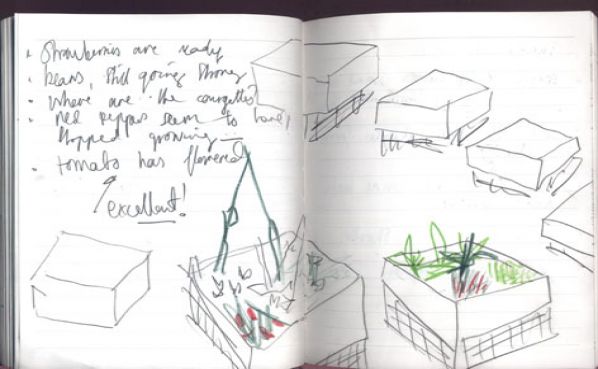 • Strawberries are ready
• beans, still going strong
• where are the courgettes
• red peppers seem to have
stopped growing
• tomato has flowered
excellent!